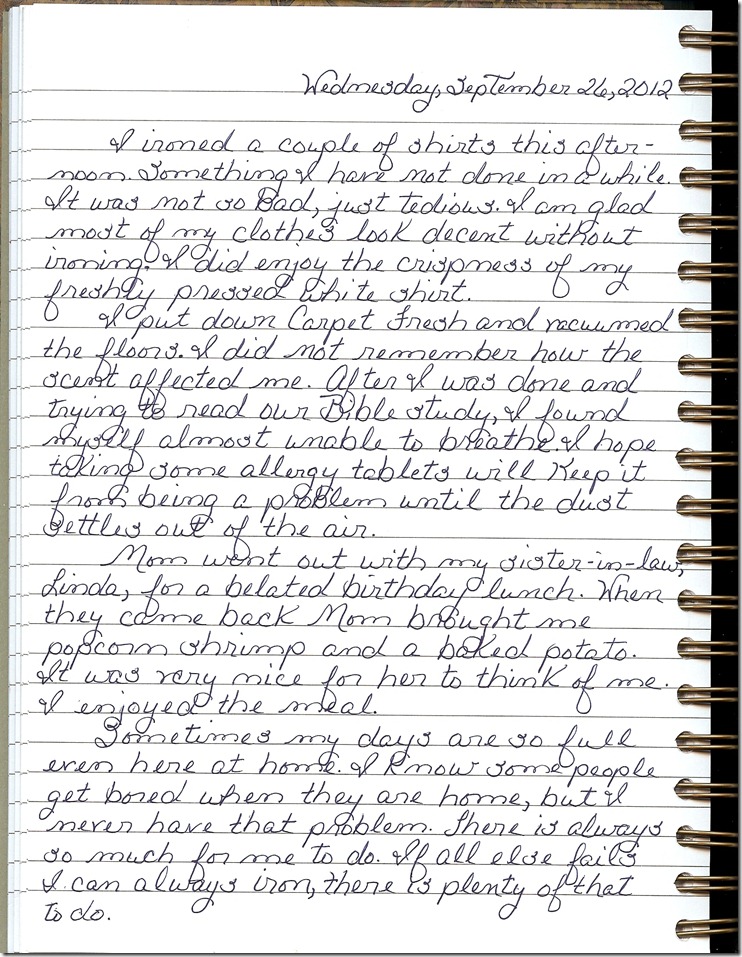 Wednesday, September 26, 2012
I ironed a couple of shirts this after-
noon. Something I have not done in a while.
It was not so bad, just tedious. I am glad
most of my clothes look decent without
ironing. I did enjoy the crispness of my
freshly pressed white shirt.
I put down Carpet Fresh and vacuumed
the floors. I did not remember how the
scent affected me. After I was done and
trying to read our Bible study, I found
myself almost unable to breathe. I hope
taking some allergy tablets will keep it
from being a problem until the dust
settles out of the air.
Mom went out with my sister-in-law,
Linda, for a belated birthday lunch. When
they came back Mom brought me
popcorn shrimp and a baked potato.
It was very nice for her to think of me.
I enjoyed the meal.
Sometimes my days are so full
even here at home. I know some people
get bored when they are home, but I
never have that problem. There is always
so much for me to do. If all else fails
I can always iron, there is plenty of that
to do.